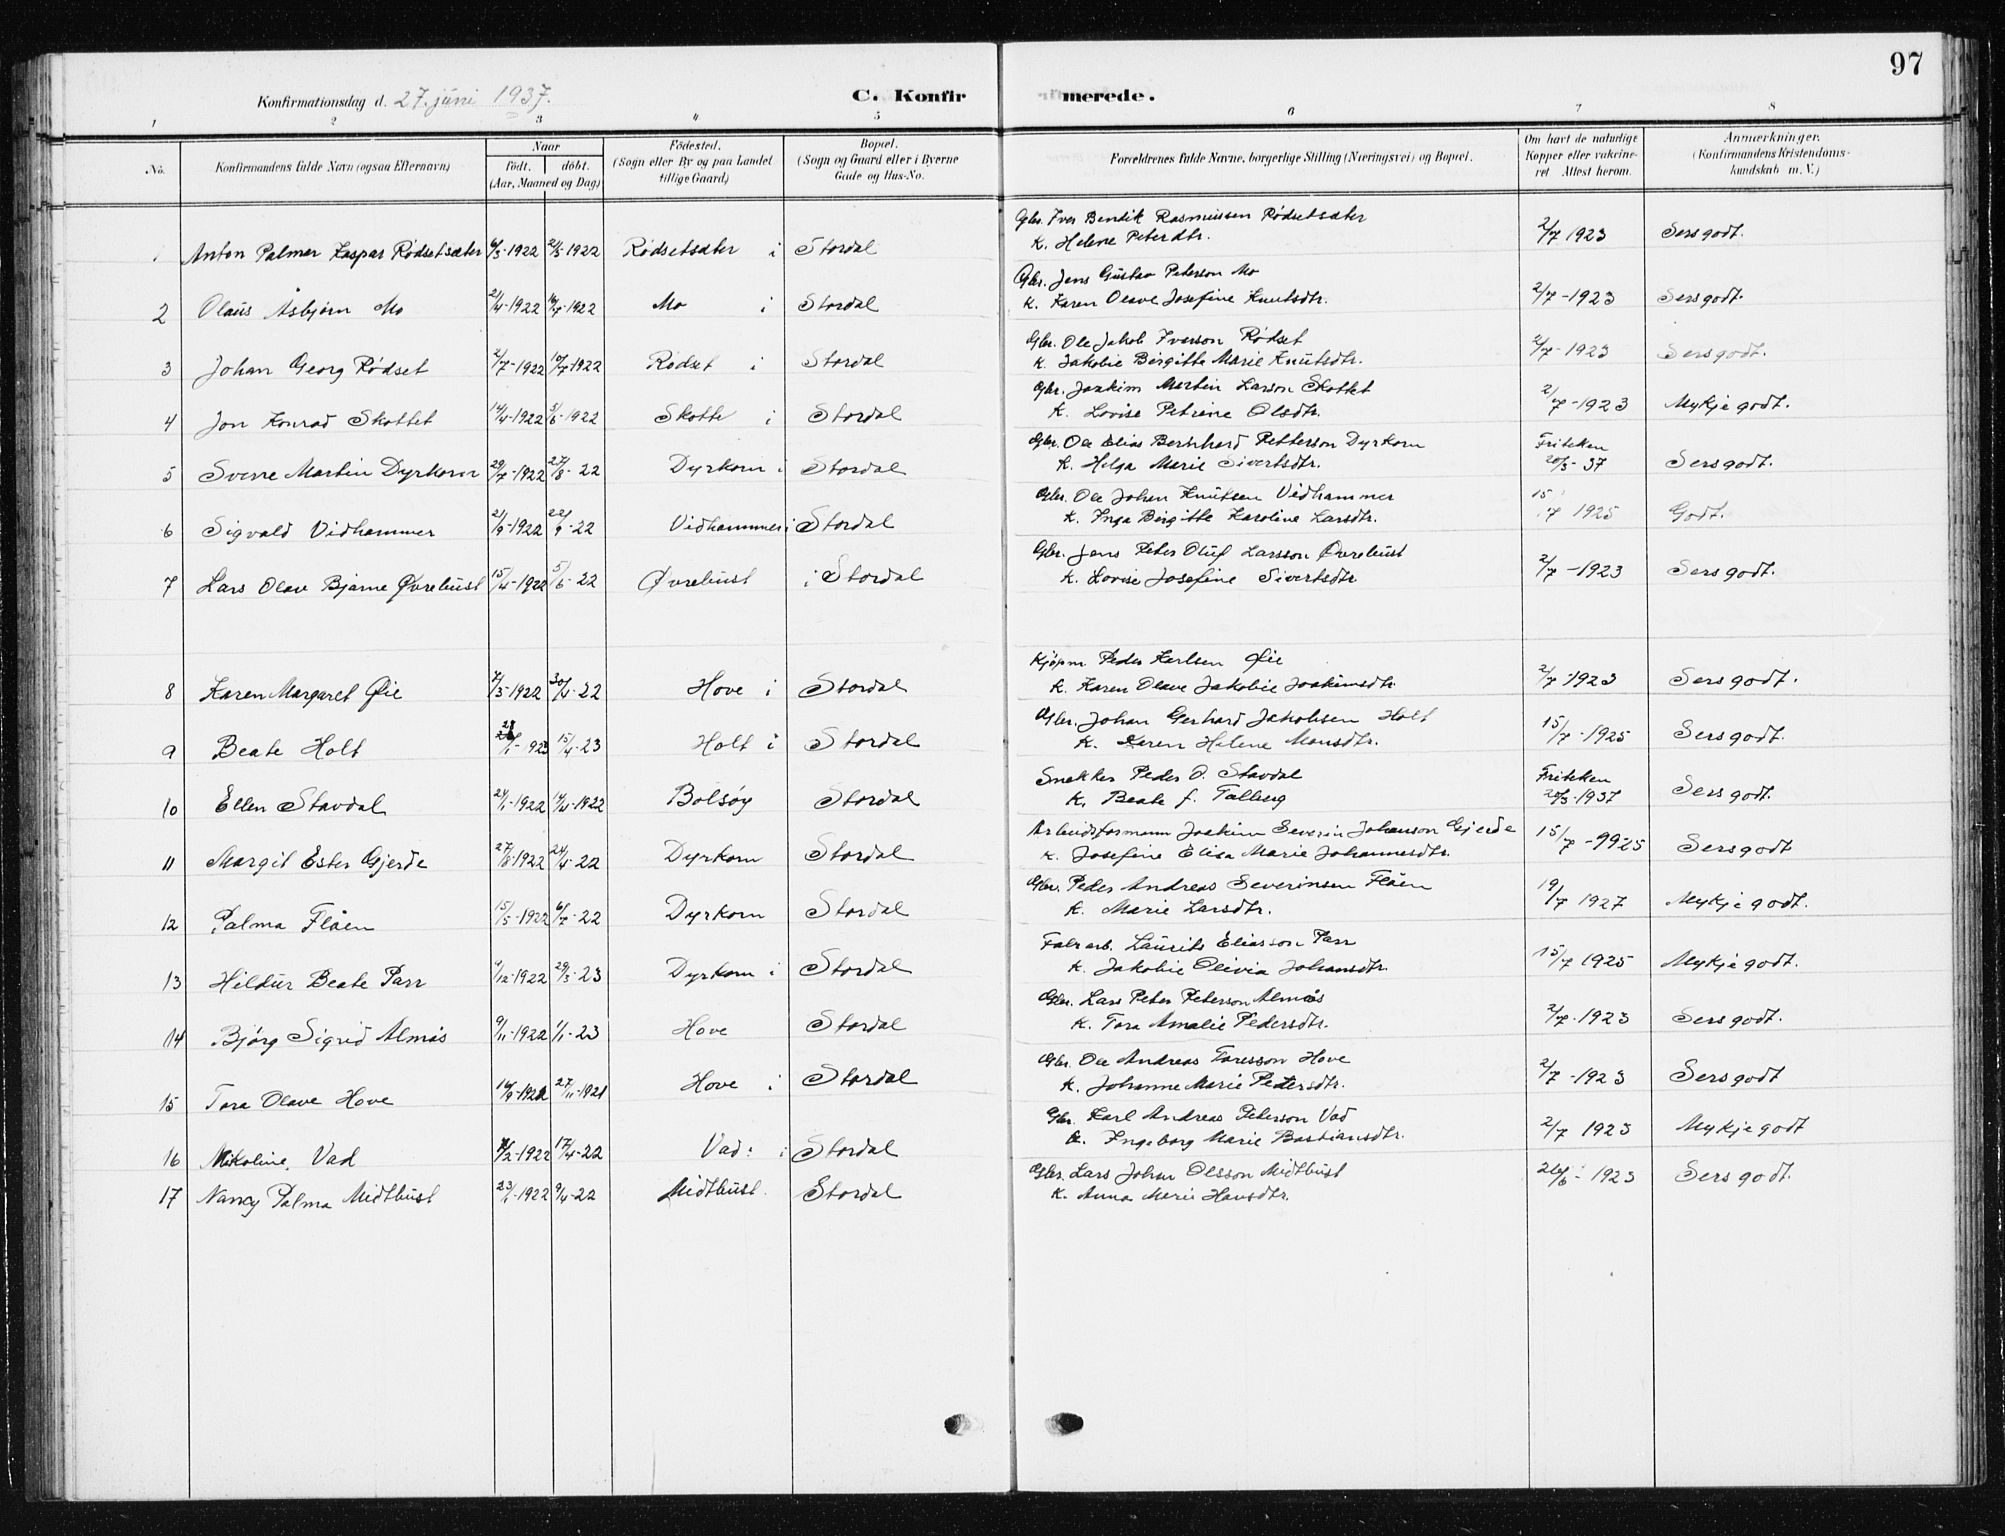 97
Konfirmationsdag d. 27. juni 1937.
C. Konfirmerede.
1 2 3 4 5 6 7 8
No. Konfirmandens fulde Navn (ogsaa Efternavn) Naar født. døbt. (Aar, Maaned og Dag) Fødested. (Sogn eller By og paa Landet tillige Gaard) Bopæl. (Sogn og Gaard eller i Byerne Gade og Hus-No. Forældrenes fulde Navne, borgerlige Stilling (Næringsvei) og Bopæl. Om havt de naturlige Kopper eller vakcineret. Attest herom. Anmærkninger. (Konfirmandens Kristendomskundskab m. V.)
Gbr. Iver Bendik Rasmussen Rødsetsæter
Anton Palmer Kaspar Rødsetsæter 1922 1922 Rødsetsæter i Stordal K. Helene Petersdtr. 2/7 1923 Sers godt.
Gbr. Jens Gustav Peterson Mo
2 Olaus Åsbjørn Mo 2/4-1922 16/7-1922 Mo i Stordal K. Karen Olave Josefine Knutsdtr. 2/7-1923 Sers godt.
Gbr. Ole Jakob Iverson Rødset
3 Johan Georg Rødset 2/7-1922 10/7 1922 Rødset i Stordal K. Jakobie Birgitte Marie Knutsdtr. 2/7-1923 Sers godt.
Gbr. Joakim Martin Larson Skottet
4 Jon Konrad Skottet 14/4-1922 5/6-1922 Skotte i Stordal K. Lovise Petrine Olsdtr. 2/7-1923 Mykje godt.
Gbr. Ole Elias Bernhard Petterson Dyrkorn Friteken
5 Sverre Martin Dyrkorn 29/7-1922 27/8-22 Dyrkorn i Stordal K. Helga Marie Sivertsdtr. 20/3-37 Sers godt.
Gbr. Ole Johan Knutsen Vidhammer
6 Sigvald Vidhammer 2/9-1922 22/9-22 Vidhammer i Stordal K. Inga Birgitte Karoline Larsdtr. 15/7 1925 Godt.
Gbr. Jens Peter Oluf Larsson Øvrebust
7 Lars Olav Bjarne Øvrebust 15/4-1922 5/6-22 Øvrebust i Stordal K. Lovise Josefine Sivertsdtr 2/7-1923 Sers godt.
Kjøpm Peder Karlsen Øie
8 Karen Margaret Øie 7/3-1922 30/4-22 Hove i Stordal K. Karen Olave Jakobie Joakimsdtr. 2/7 1923 Sers godt.
Gbr. Johan Gerhard Jakobsen Holt
9 Beate Holt 1923 15/4-23 Holt i Stordal K. Karen Helene Monsdtr. 15/7-1925 Sers godt.
Snekker Peder O. Stavdal Friteken
10 Ellen Stavdal 24/1-1922 14/4-1922 Bolsøy Stordal K. Beate f. Talberg 20/3-1937 Sers godt.
Arbeidsformann Joakim Severin Johanson Gjerde
11 Margit Ester Gjerde 1922 24/4-22 Dyrkorn Stordal K. Josefine Elisa Marie Johannesdtr. 15/7-9925 Sers godt
Gbr. Peder Andreas Severinsen Flåen
12 Palma Flåen 15/5-1922 6/7-22 Dyrkorn Stordal K. Marie Larsdtr. 19/7 1927 Mykje godt.
Fabr arb. Laurits Eliasson Parr
13 Hildur Beate Parr 1922 29/3-23 Dyrkorn i Stordal K. Jakobie Olivia Johansdtr. 15/7 1925 Mykje godt.
Gbr. Lars Peter Peterson Almås
14 Bjørg Sigrid Almås 9/11-1922 1/1-23 Hove Stordal K. Tora Amalie Pedersdtr. 2/7-1923 Sers godt.
Gbr. Ole Andreas Toresson Hove
15 Tora Olave Hove 16/9-1921 27/11-1921 Hove i Stordal K. Johanne Marie Petersdtr. 2/7-1923 Sers godt
Gbr. Karl Andreas Peterson Vad
16 Nikoline Vad 1922 17/4-22 Vad i Stordal K. Ingeborg Marie Bastiansdtr. 2/7 1923 Mykje godt
Gbr. Lars Johan Olsson Midtbust
17 Nancy Palma Midtbust 23/1-1922 9/4-22 Midtbust. Stordal K. Anna Marie Hansdtr. 26/6-1923 Sers godt.